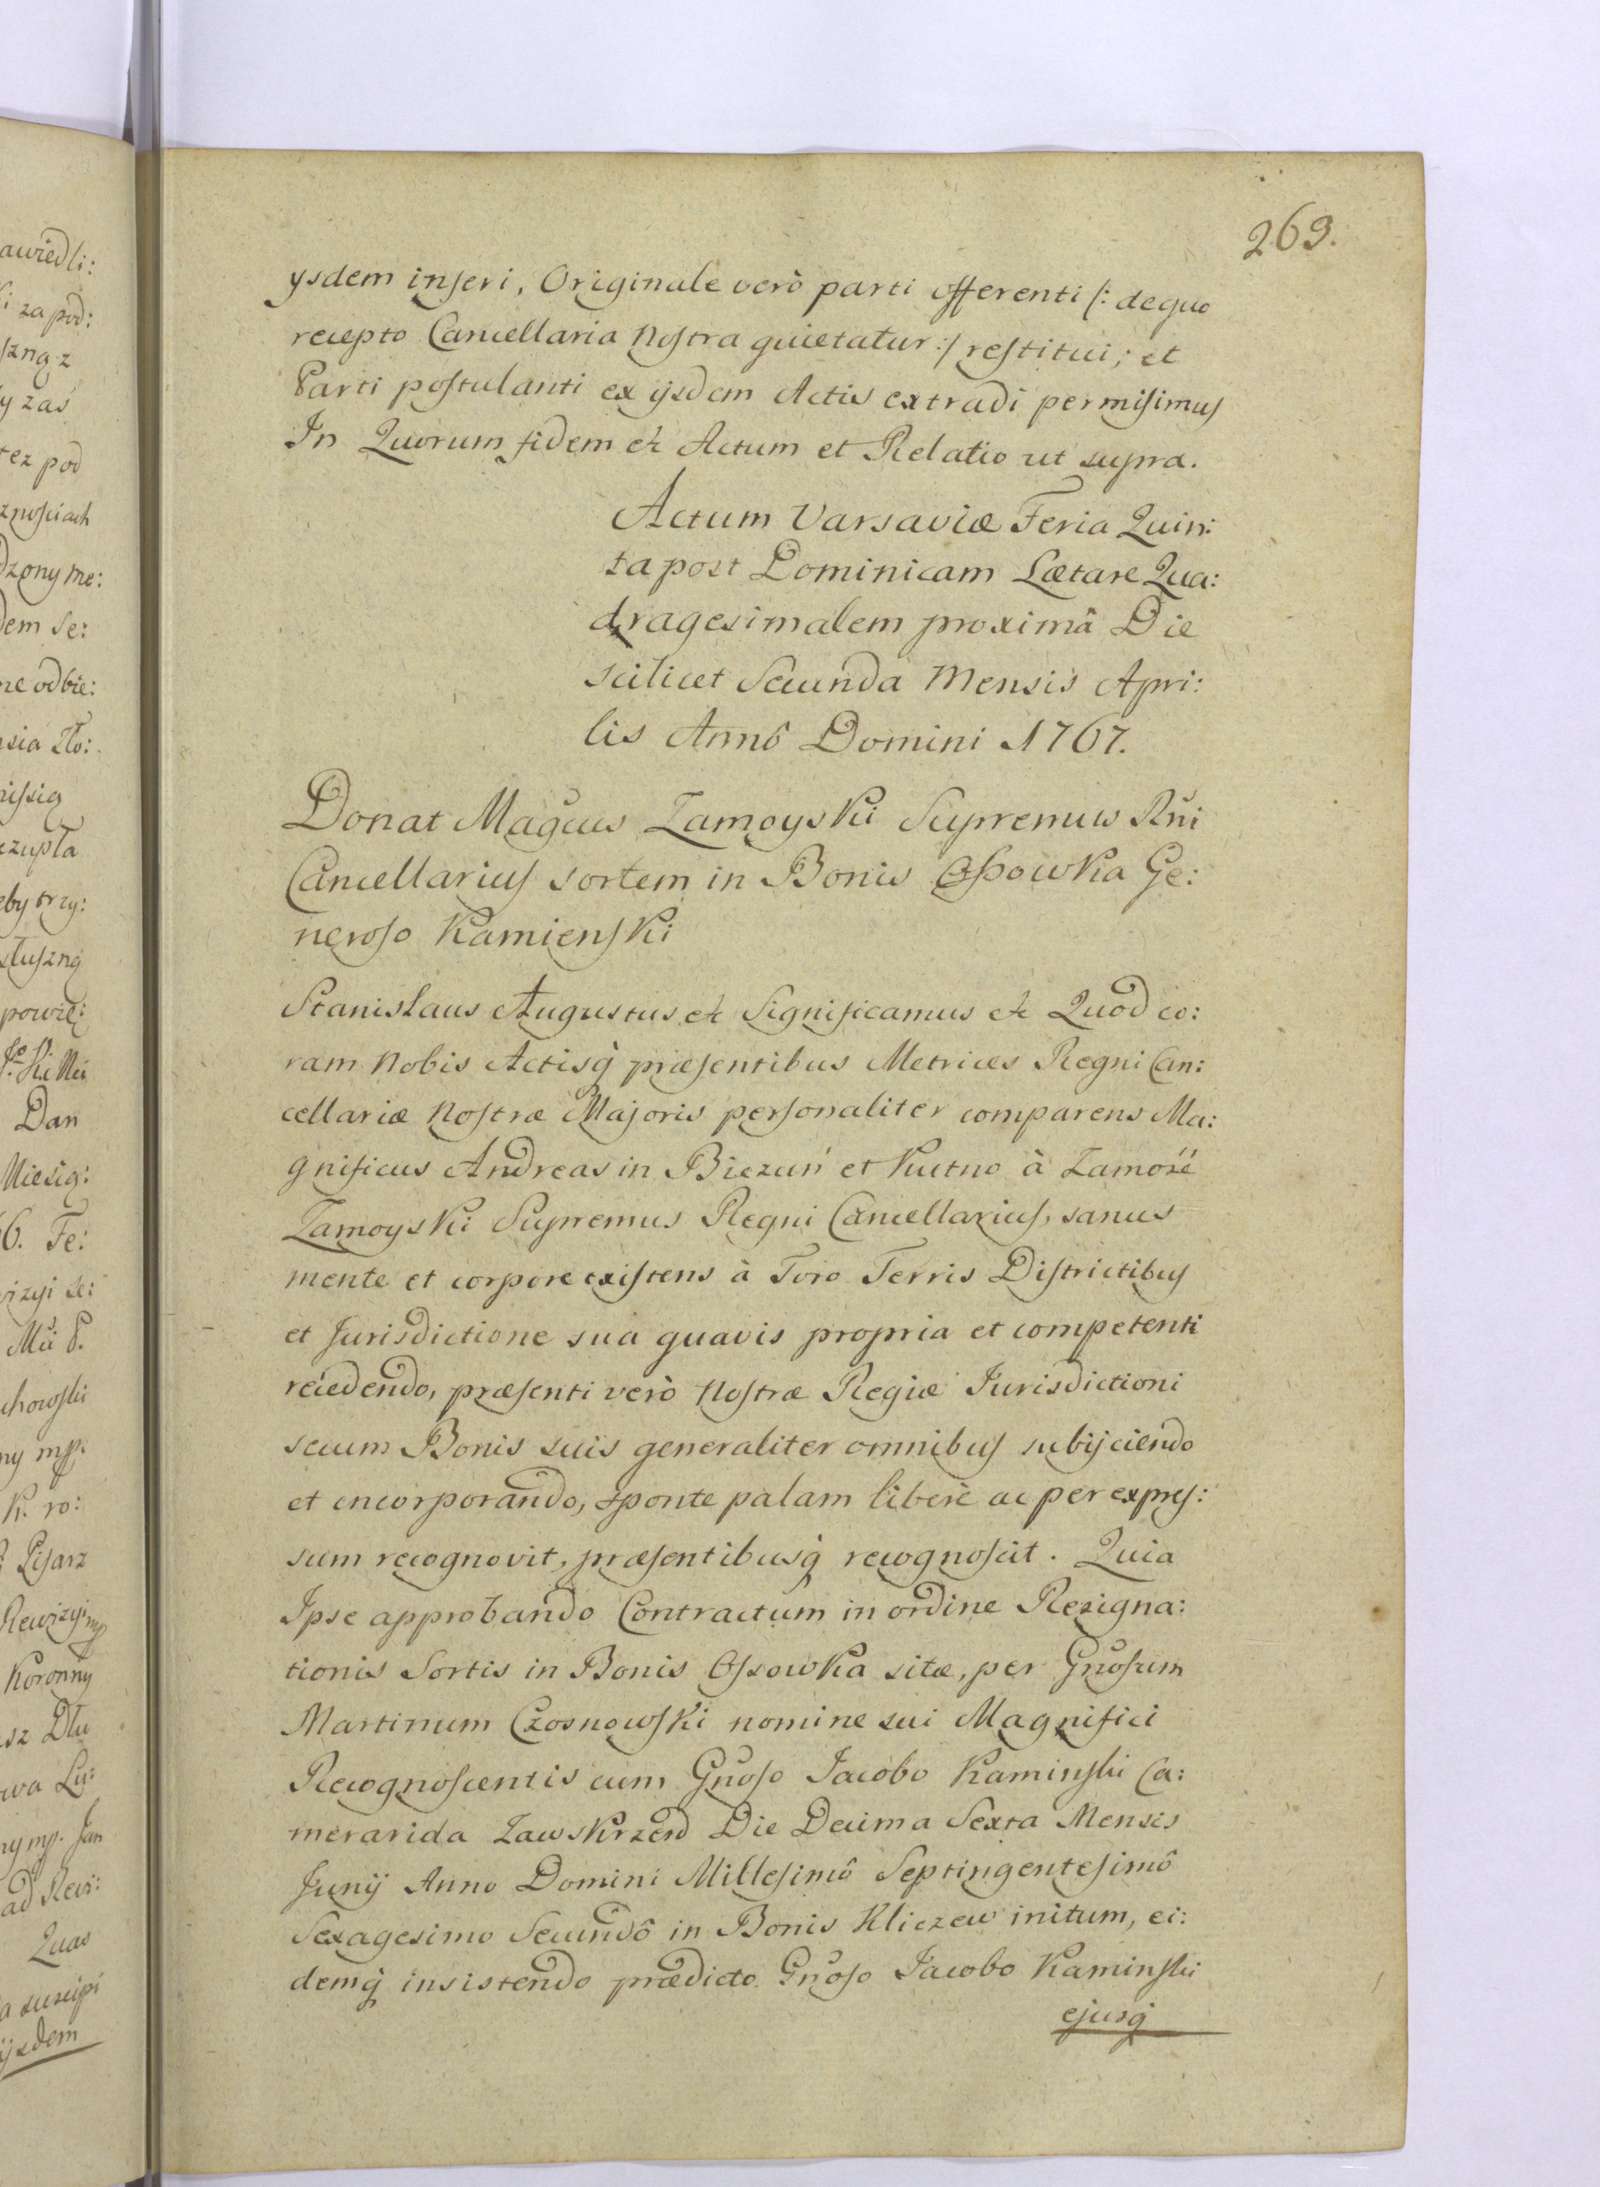 269.
ysdem inseri, Originale verò parti offerenti /: de quo
recepto Cancellaria Nostra quietatur :/ restitui; et
Parti postulanti ex ijsdem Actis extradi permisimus
In Quorum fidem &c Actum et Relatio ut supra.
Actum Varsaviæ Feria Quin:
ta post Dominicam Lætare Qua:
dragesimalem proximâ Die
scilicet Secunda Mensis Apri:
lis Annô Domini 1767.
Donat Magcus Zamoyski Supremus Rni
Cancellarius sortem in Bonis Ossowka Ge:
neroso Kamienski
Stanislaus Augustus &c Significamus &c Quod co:
ram Nobis Actisq præsentibus Metrices Regni Can:
cellariæ Nostræ Majoris personaliter comparens Ma:
gnificus Andreas in Biezuń et Kutno à Zamośé
Zamoyski Supremus Regni Cancellarius, sanus
mente et corpore existens à Foro Terris Districtibus
et Jurisdictione sua quavis propria et competenti
recedendo, præsenti verò Nostræ Regiæ Jurisdictioni
secum Bonis suis generaliter omnibus subijciendo
et incorporando, sponte palam liberè ac per expres:
sum recognovit, præsentibusq recognoscit. Quia
Ipse approbando Contractum in ordine Resigna:
tionis Sortis in Bonis Ossowka sitæ, per Gnosum
Martinum Czosnowski nomine sui Magnifici
Recognoscentis cum Gnoso Jacobo Kaminski Ca:
merarida Zawskrzen̄ Die Decima Sexta Mensis
Junij Anno Domini Millesimô Septingentesimô
Sexagesimo Secundô in Bonis Kliczew initum, ei:
demq insistendo prædicto Gnoso Jacobo Kaminski
ejusq
awiedli:
i za pod:
szną z
y zaś
tez pod
znościach
dzony me:
dem Se:
ne odbie:
eby trzy:
słuszną
powie:
Dan
Miesią:
6. Fe:
wizyi Se:
K. ro:
Pisarz
Koronny
ad Revi:
Quas
a suscipi
ijsdem